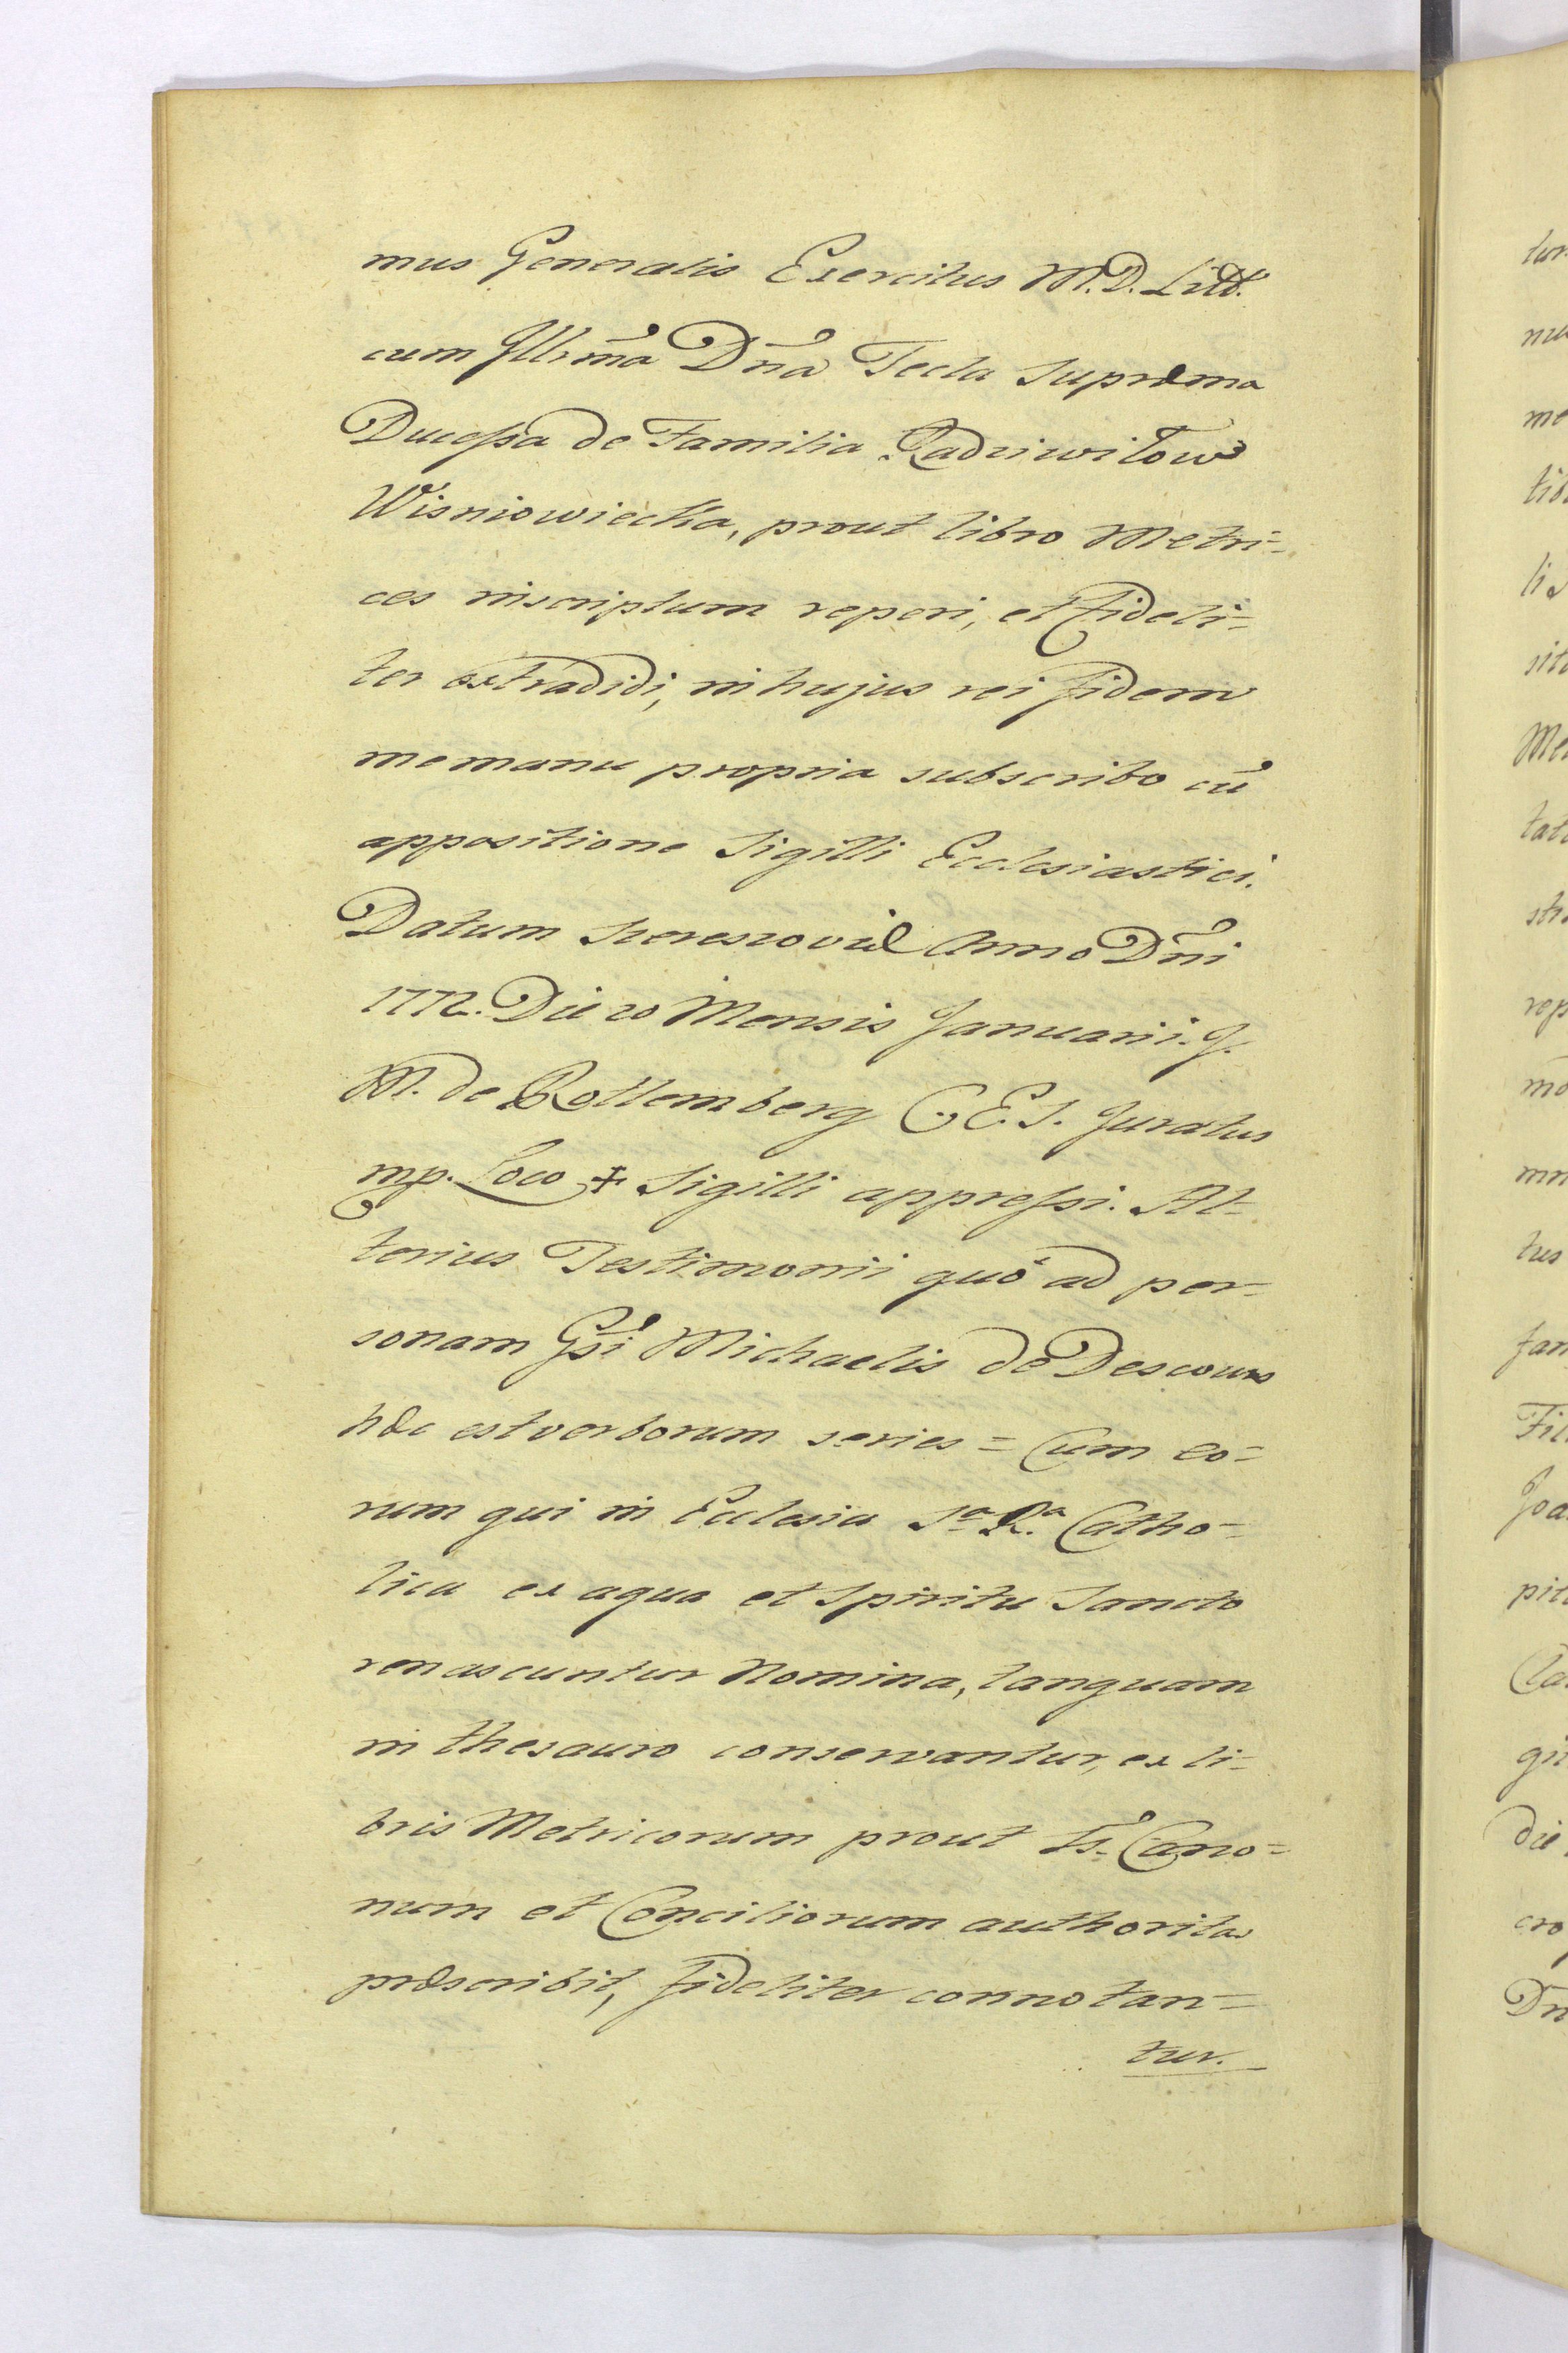 mus Generalis Exercitus M.D. Litt.
cum Illrm̃a Dña Tecla Supræma
Ducessa de Familia Radziwiłow
Wisniowiecka, prout libro Metri=
ces inscriptum reperi, et Fideli=
ter extradidi, in hujus rei fidem
me manu propria subscribo cũ
appositione Sigilli Ecclesiastici.
Datum Szereszoviæ Anno Dñi
1772. Die 20 Mensis Januarii. J.
M. de Rottemberg C. E. S. Juratus
mp. Loco + Sigilli appressi. Al=
terius Testimonii quó ad per=
sonam Gsi Michaelis de Descours
hæc est verborum series = Cum eo=
rum qui in Ecclesia Sa Ra Catho=
lica ex aqua et Spiritu Sancto
renascuntur Nomina, tanquam
in thesauro conservantur, ex li=
bris Metricorum prout Ss. Cano=
num et Conciliorum authoritas
præscribit, fideliter connotan=
tur.
lor
me
tib
lis
sit
Me
tat
str
rep
mo
mn
tus
fam
Fil
Joa
pit
Ca
gi
die
cro
Dn